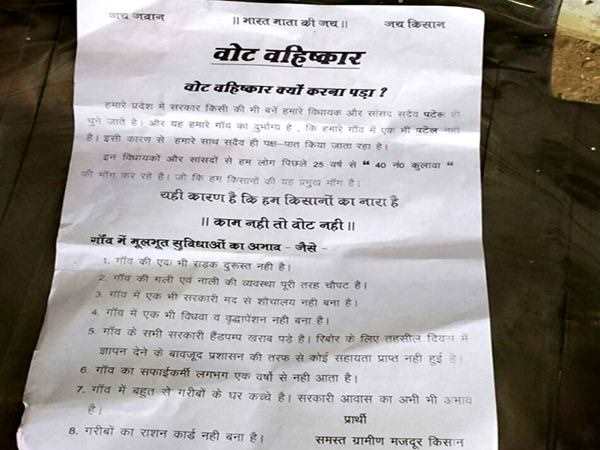 जय जवान || भारत माता की जय|| जय किसान
वोट वहिष्कार
वोट वहिष्कार क्यों करना पड़ा ?
हमारे प्रदेश में सरकार किसी की भी बनें हमारे विधायक और सांसद सदैव पटेल ही
चुने जाते है। और यह हमारे गॉव का दुर्भाग्य है , कि हमारे गॉव में एक भी पटेल नही
है। इसी कारण से हमारे साथ सदैव ही पक्ष-पात किया जाता रहा है।
इन विधायकों और सांसदों से हम लोग पिछले 25 वर्ष से “ 40 नं0 कुलावा ”
की मॉग कर रहे है। जो कि हम किसानों की यह प्रमुख मॉंग है।
यही कारण है कि हम किसानों का नारा है
|| काम नही तो वोट नही||
गॉव में मूलभूत सुविधाओं का अभाव - जैसे -
1. गॉव की एक भी सड़क दुरूस्त नही है।
2. गॉव की गली एवं नाली की व्यवस्था पूरी तरह चौपट है।
3. गॉव में एक भी सरकारी मद से शौचालय नही बना है।
4. गॉव में एक भी विधवा व वृद्धापेंशन नही बना है।
5. गॉव के सभी सरकारी हैंडपम्प खराब पड़े है। रिबोर के लिए तहसील दिवस में
ज्ञापन देने के बावजूद प्रशासन की तरफ से कोई सहायता प्राप्त नही हुई है।
6. गॉव का सफाईकर्मी लगभग एक वर्षो से नही आता है।
7. गॉव में बहुत से गरीबों के घर कच्चे है। सरकारी आवास का अभी भी अभाव
है।
प्रार्थी
8. गरीबों का राशन कार्ड नही बना है।
समस्त ग्रामीण मजदूर किसान